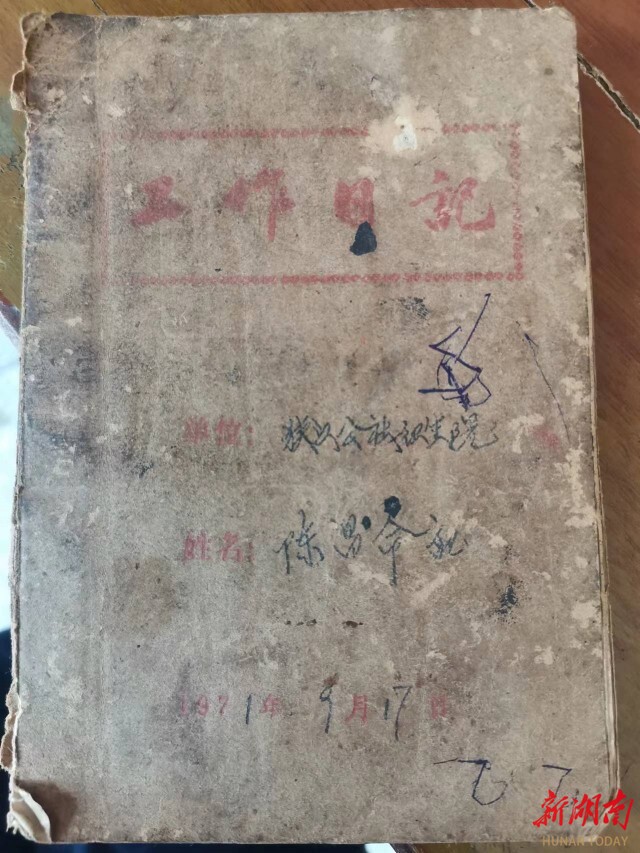 工作日記
单位：公社
姓名：陈昌命
1971年9月17日
新湖南
HUNAN TODAY